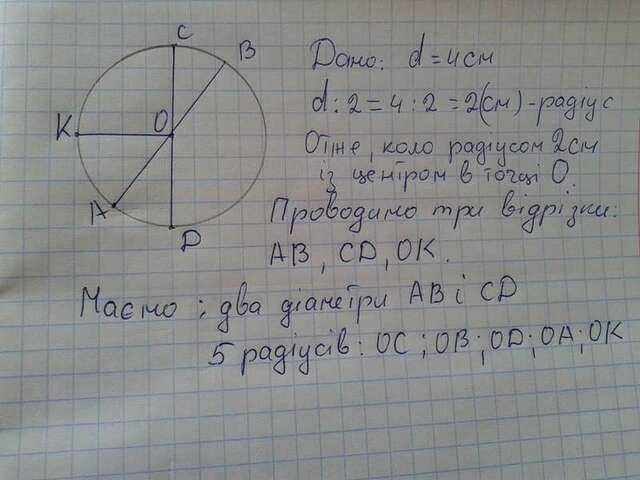 C
B
K
O
A
D
Дано: d = 4 см
d : 2 = 4 : 2 = 2(см) - радіус
Отже, коло радіусом 2 см
із центром в точці О.
Проводимо три відрізки:
АВ, CD, ОК.
Маємо: два діаметри АВ і CD
5 радіусів: ОС; ОВ; OD; ОА; ОК